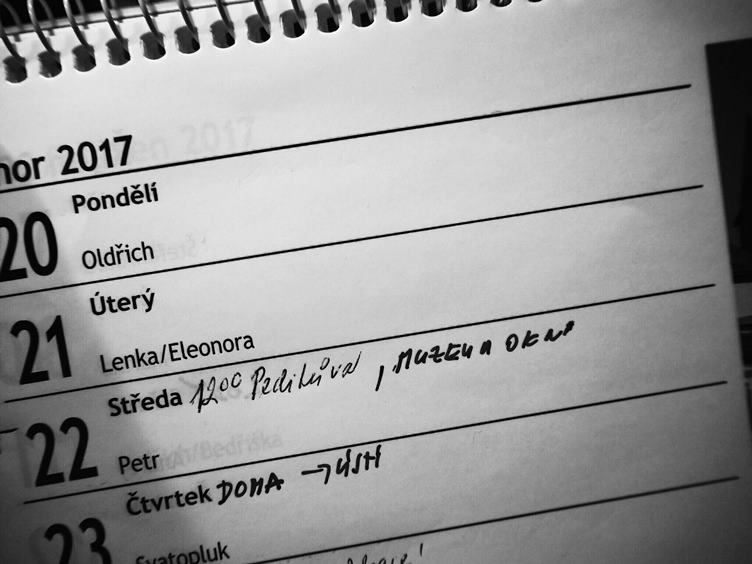 nor 2017
Pondělí
20
Oldřich
Úterý
21
Lenka/Eleonora
Středa 1200 Pedikúra, MUZEUM OKNA
22
Petr
Čtvrtek DOMA → ÚSTÍ
23
Svatopluk